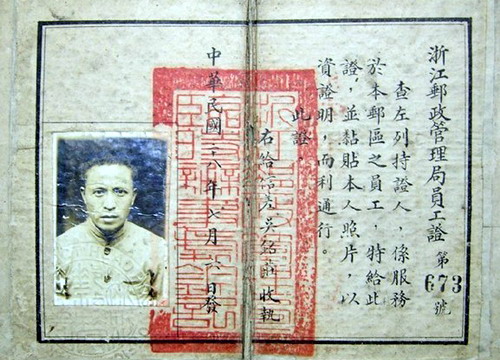 浙江郵政管理局員工證 第673號
查左列持證人,係服務
於本郵區之員工,特給此
證,並黏貼本人照片,以
資證明,而利通行。
此證。
右給 吳 收執
中華民國 八年七月 日發